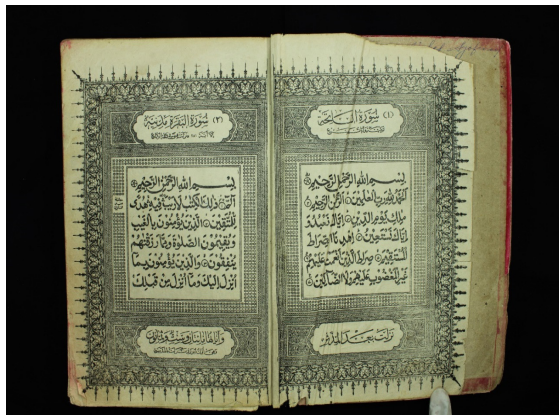 (١) سورة الفاتحة
بسم الله الرحمن الرحيم
الحمد لله رب العالمين الرحمن الرحيم
ملك يوم الدين اياك نعبد و
اياك نستعين اهدنا الصراط
المستقيم صراط الذين انعمت عليهم
غير المغضوب عليهم ولا الضالين
نزلت بعد المدثر
(٢) سورة البقرة مدنية
بسم الله الرحمن الرحيم
الم ذلك الكتب لا ريب فيه هدى
للمتقين الذين يؤمنون بالغيب
ويقيمون الصلوة ومما رزقنهم
ينفقون والذين يؤمنون بما
انزل اليك وما انزل من قبلك